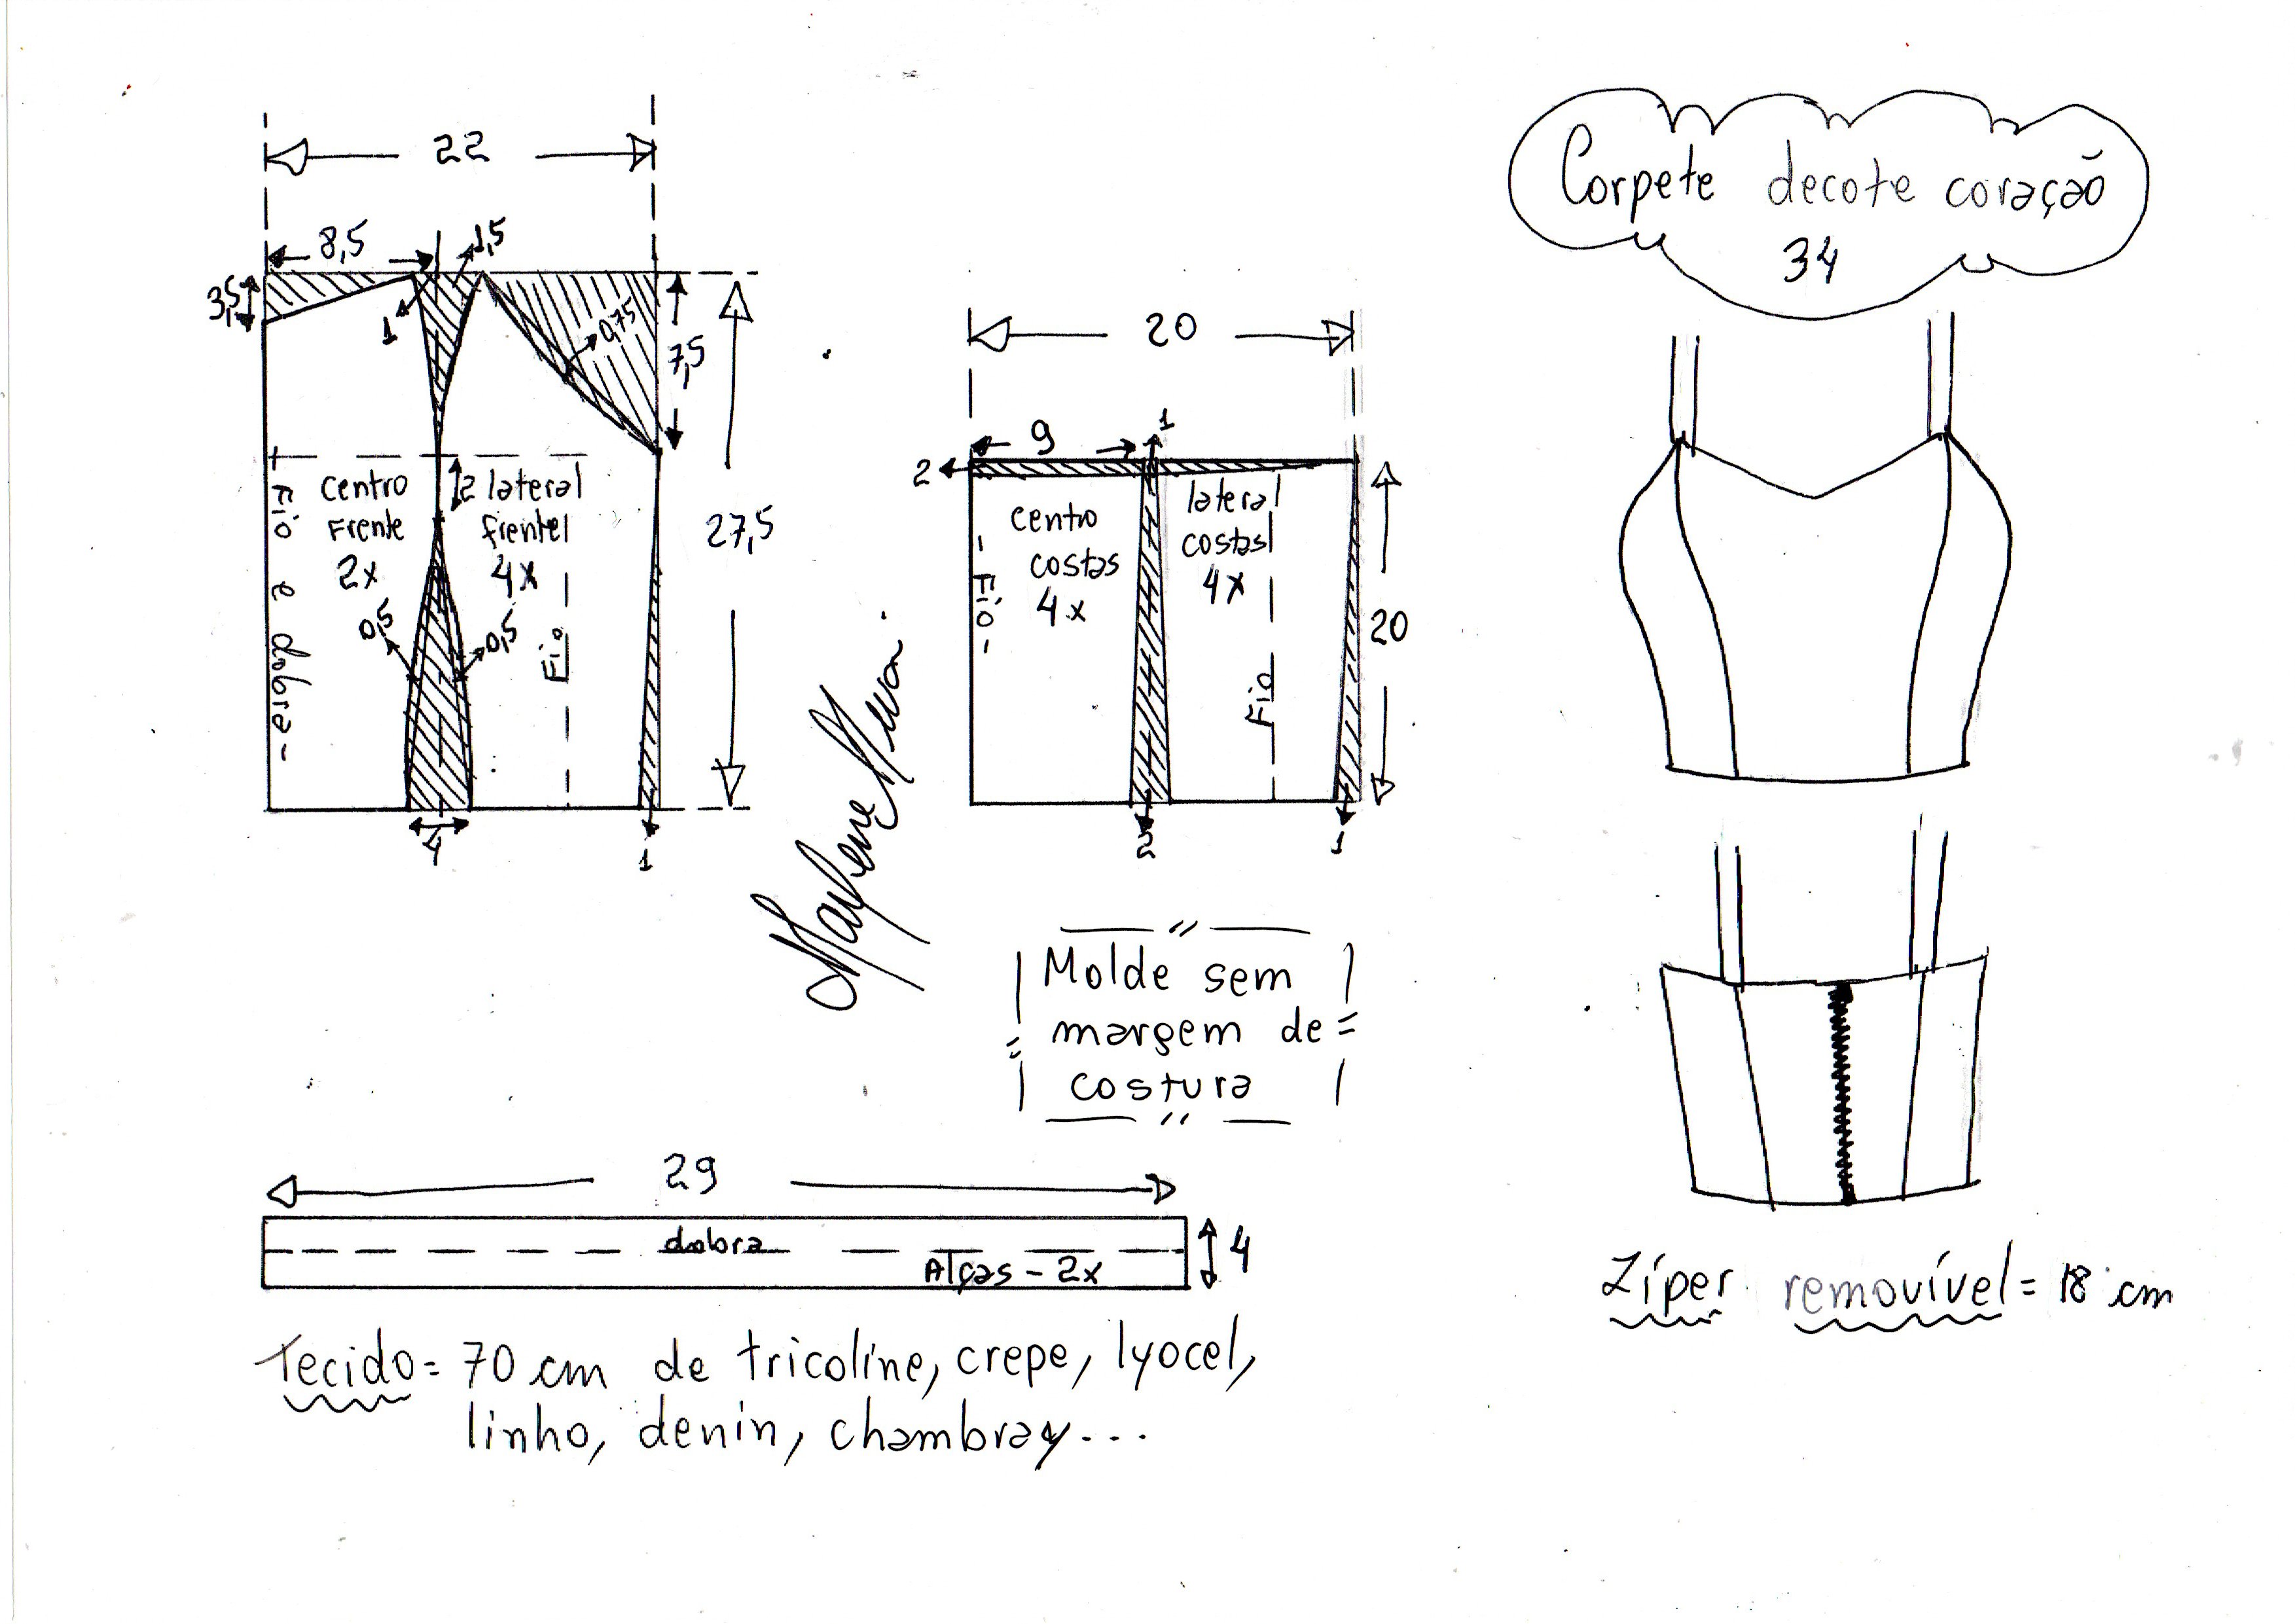 Corpete decote coração
34
22
8,5
1,5
3,5
1
0,75
7,5
27,5
2
centro
Frente
2x
lateral
frente
4x
Fio e dobra
Fio
0,5
0,5
4
1
20
9
1
2
centro
costas
4x
lateral
costas
4x
Fio
Fio
20
2
1
Marlene Mukai
Molde sem
margem de
costura
29
dobra
Alças - 2x
4
Tecido = 70 cm de tricoline, crepe, lyocel,
linho, denin, chambray...
Zíper removível = 18 cm